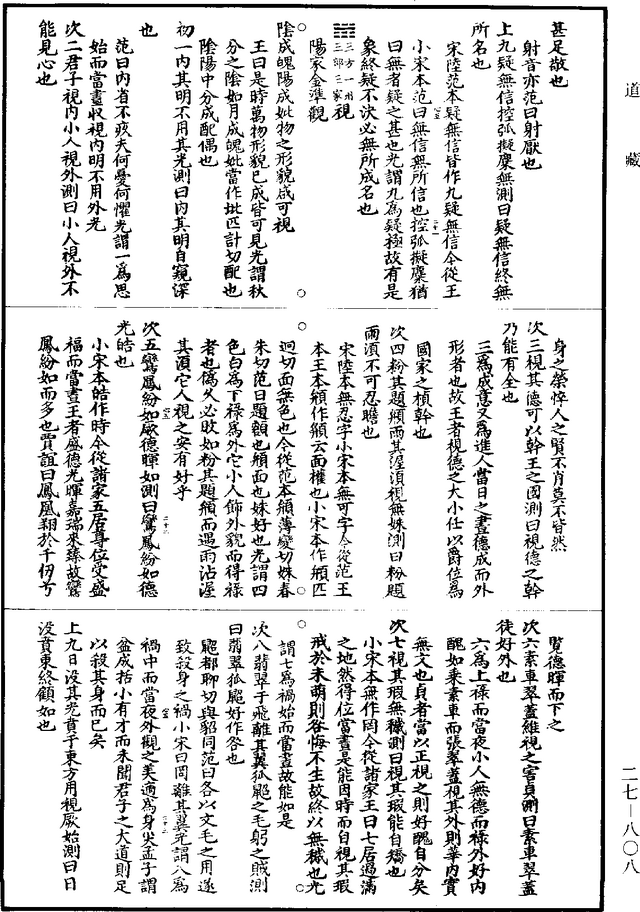 道藏
甚足敬也
射音亦范曰射厭也
上九疑無信控弧擬麋無測曰疑無信終無
所名也
宋陸范本疑無信皆作九疑無信今從王
小宋本范曰無信無所信也控弧擬麋猶
曰無者疑之甚也光謂九為疑極故有是
象終疑不決必無所成名也
三方一州
三部三家
視
陽家金準觀
陰成魄陽成妣物之形貌咸可視
王曰是時萬物形貌已成皆可見光謂秋
分之陰如月成魄妣當作妣匹計切配也
陰陽中分成配偶也
初一內其明不用其光測曰內其明自窺深
也
范曰內省不疚夫何憂何懼光謂一為思
始而當晝收視內明不用外光
次二君子視內小人視外測曰小人視外不
能見心也
身之榮悴人之賢不肖莫不皆然
次三視其德可以幹王之國測曰視德之幹
乃能有全也
三為成意又為進人當日之晝德成而外
形者也故王者視德之大小仕以爵位為
國家之楨幹也
次四粉其題頯雨其渥須視無姝測曰粉題
雨須不可忍瞻也
宋陸本無忍字小宋本無可字今從范王
本王本頯作䪼云面權也小宋本作䪼匹
迥切面無色也今從范本頯薄變切姝春
朱切范曰題頟也頯面也姝好也光謂四
色白為下祿為外它小人飾外貌而得祿
者也偽久必敗如粉其題頯而遇雨沾渥
其湏它人視之安有好乎
次五鸞鳳紛如厥德暉如測曰鸞鳳紛如德
光皓也
小宋本皓作時今從諸家五居尊位受盛
福而當晝王者盛德光暉嘉瑞來臻故鸞
鳳紛如而多也賈誼曰鳳凰翔於千仞兮
覽德暉而下之
次六素車翠蓋維視之害貞測曰素車翠蓋
徒好外也
六為上祿而當夜小人無德而祿外好內
醜如乘素車而張翠蓋視其外則華內實
無文也貞者當以正視之則好醜自分矣
次七視其瑕無穢測曰視其瑕能自矯也
小宋本無作罔今從諸家王曰七居過滿
之地然得位當晝是能因時而自視其瑕
戒於未萌則咎悔不生故終以無穢也光
謂七為禍始而當晝故能如是
次八翡翠于飛離其翼狐貂之毛躬之賊測
曰翡翠狐貂好作咎也
貂都聊切與貂同范曰各以文毛之用遂
致殺身之禍小宋曰罔離其翼光謂八為
禍中而當夜外觀之美適為身災孟子謂
盆成括小有才而未聞君子之大道則足
以殺其身而已矣
上九日沒其光賁于東方用視厥始測曰日
沒賁東終顧始也
二七—八〇八